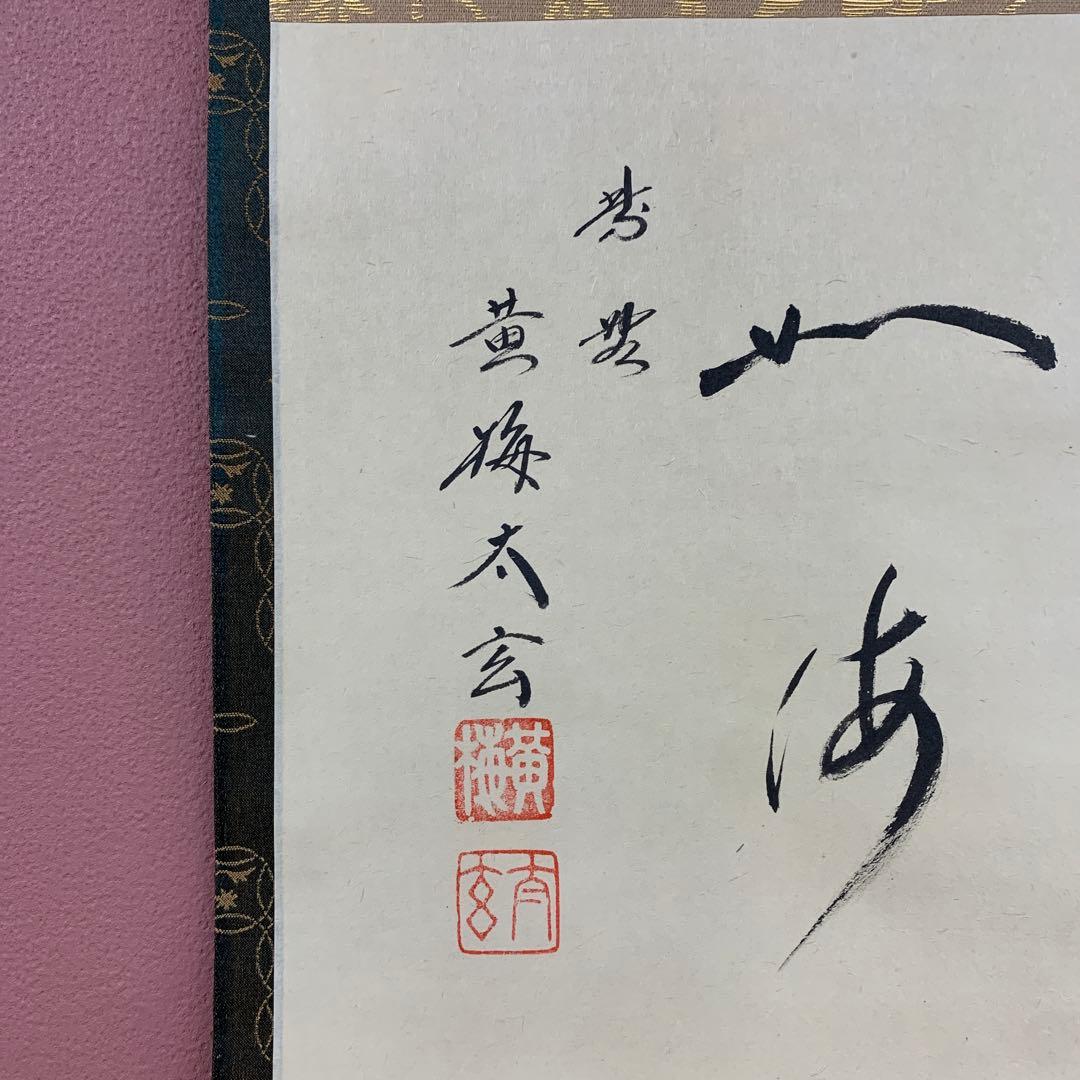 海
紫野
黄梅太玄
黄梅
太玄